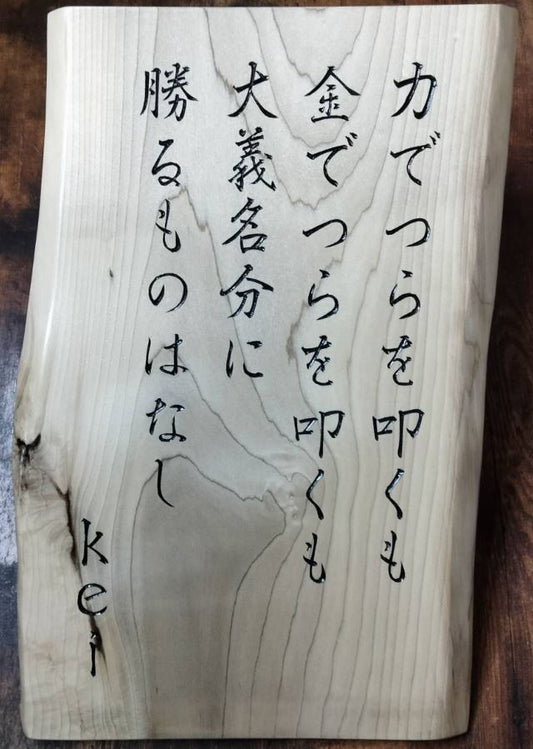 力でつらを叩くも
金でつらを叩くも
大義名分に
勝るものはなし
kei